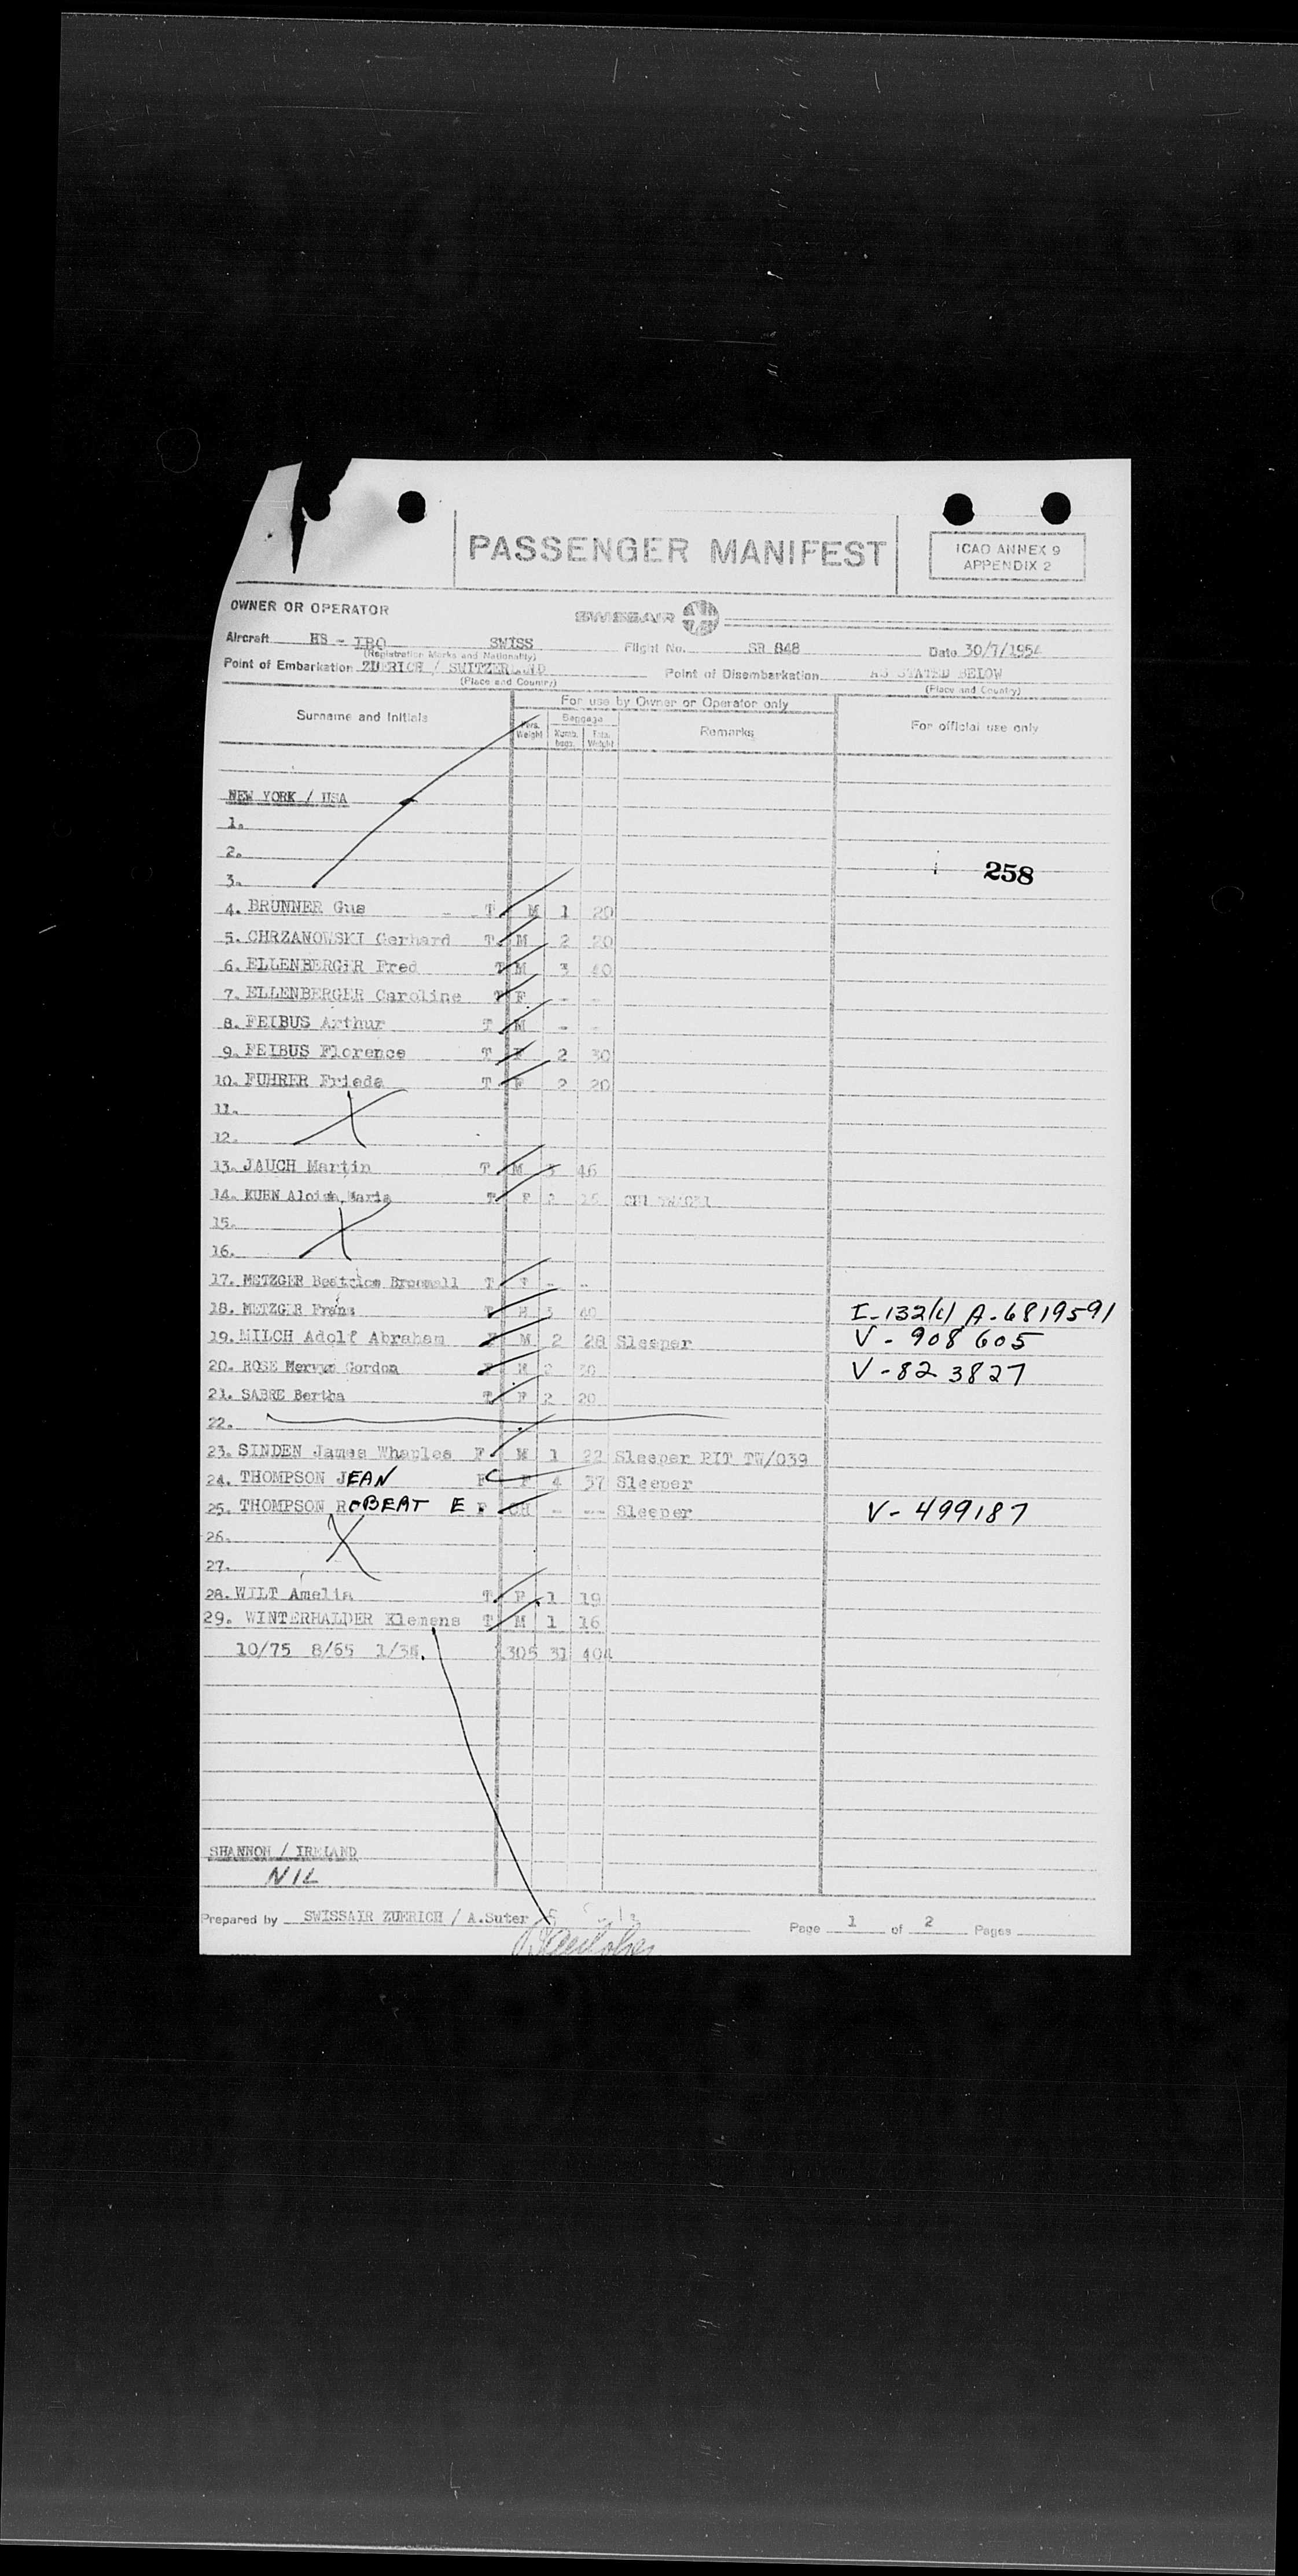 PASSENGER MANIFEST
ICAO ANNEX 9
APPENDIX 2
OWNER OR OPERATOR
SWISSAIR
Aircraft HB - IBO SWISS Flight No. SR 848 Date 30/7/1954
(Registration Marks and Nationality)
Point of Embarkation ZUERICH / SWITZERLAND Point of Disembarkation AS STATED BELOW
(Place and Country) (Place and Country)
For use by Owner or Operator only
Surname and Initials Pers. Weight Baggage Numb. bags. Weight Remarks For official use only
NEW YORK / USA
1.
2.
258
3.
4. BRUNNER Gus T M 1 20
5. CHRZANOWSKI Gerhard T M 2 20
6. ELLENBERGER Fred T M 3 40
7. ELLENBERGER Caroline T F - -
8. FEIBUS Arthur T M - -
9. FEIBUS Florence T F 2 30
10. FUHRER Frieda T F 2 20
11.
12.
13. JAUCH Martin T M 3 46
14. KUHN Maria T F 2
15.
16.
17. METZGER Beatrice Broomall T F - --
18. METZGER Frans T M 3 40 I-132(1) A-6819591
19. MILCH Adolf Abraham F M 2 28 Sleeper V-908 605
20. ROSE Mervyn Gordon M 2 V-82 3827
21. SABRE Bertha T F 2 20
22.
23. SINDEN James Whaples F M 1 22 Sleeper PIT TW/039
24. THOMPSON JEAN F F 4 37 Sleeper
25. THOMPSON ROBERT E F CH - -- Sleeper V-499187
26.
27.
28. WILT Amelia T F 1 19
29. WINTERHALDER Klemens T M 1 16
10/75 8/65 1/35. 1305 31 404
SHANNON / IRELAND
NIL
Prepared by SWISSAIR ZUERICH / A.Suter Page 1 of 2 Pages